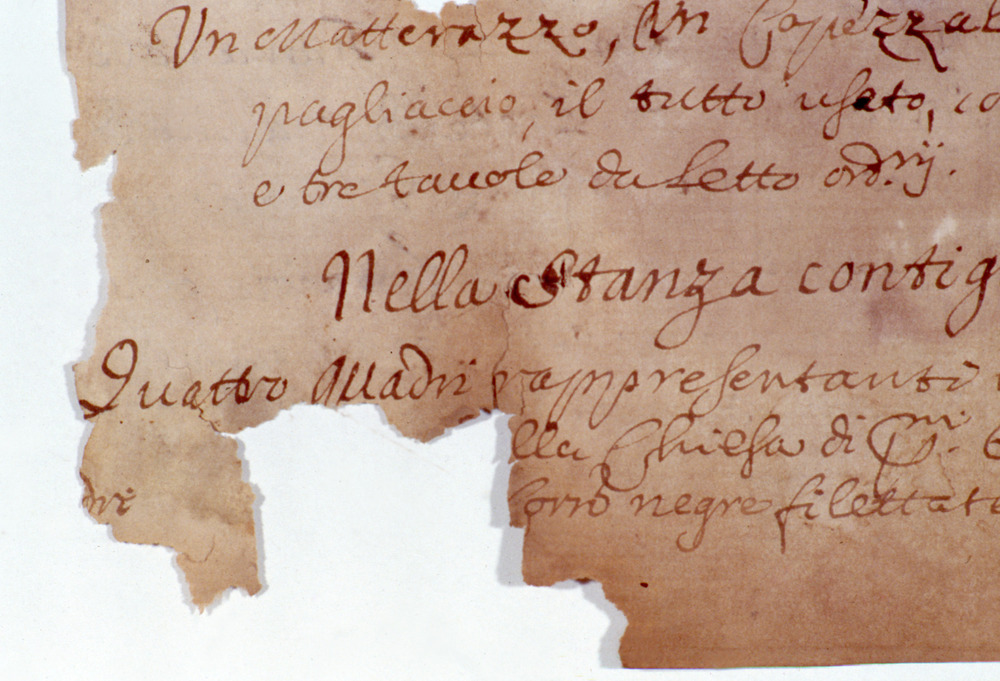 Un Matterazzo, Un Capezzal
pagliaccio, il tutto usato, co
e tre tavole da Letto ord.rij.
Nella Stanza contig
Quattro quadri rappresentanti
lla Chiesa di
dre corrò negre filettate